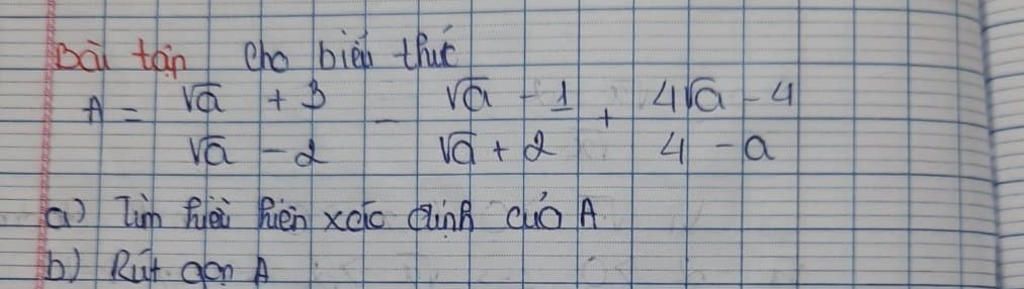 Bài tập Cho biểu thức
A = (√a + 3)/(√a - 2) - (√a - 1)/(√a + 2) + (4√a - 4)/(4 - a)
a) Tìm điều kiện xác định của A
b) Rút gọn A